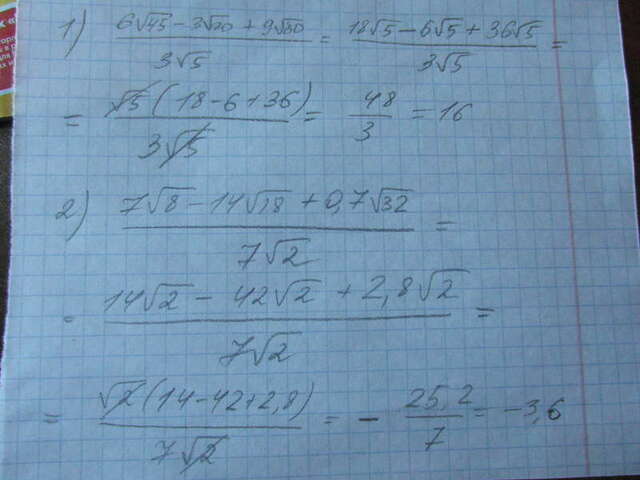 1) (6√45 - 3√20 + 9√80) / 3√5 = (18√5 - 6√5 + 36√5) / 3√5 =
= √5(18 - 6 + 36) / 3√5 = 48/3 = 16
2) (7√8 - 14√18 + 0,7√32) / 7√2 =
= (14√2 - 42√2 + 2,8√2) / 7√2 =
= √2(14 - 42 + 2,8) / 7√2 = - 25,2/7 = -3,6